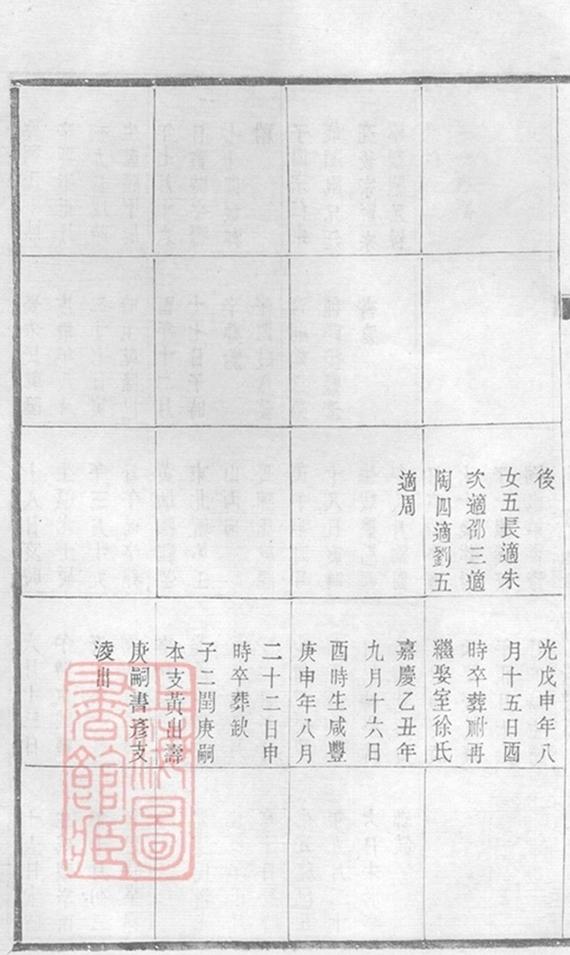 後
女五長適朱
次適邵三適
陶四適劉五
適周
光戊申年八
月十五日酉
時卒葬祔再
繼娶室徐氏
嘉慶乙丑年
九月十六日
酉時生咸豐
庚申年八月
二十二日申
時卒葬欽
子二閏庚嗣
本支黃出壽
庚嗣書彥支
淩出
圖
書館